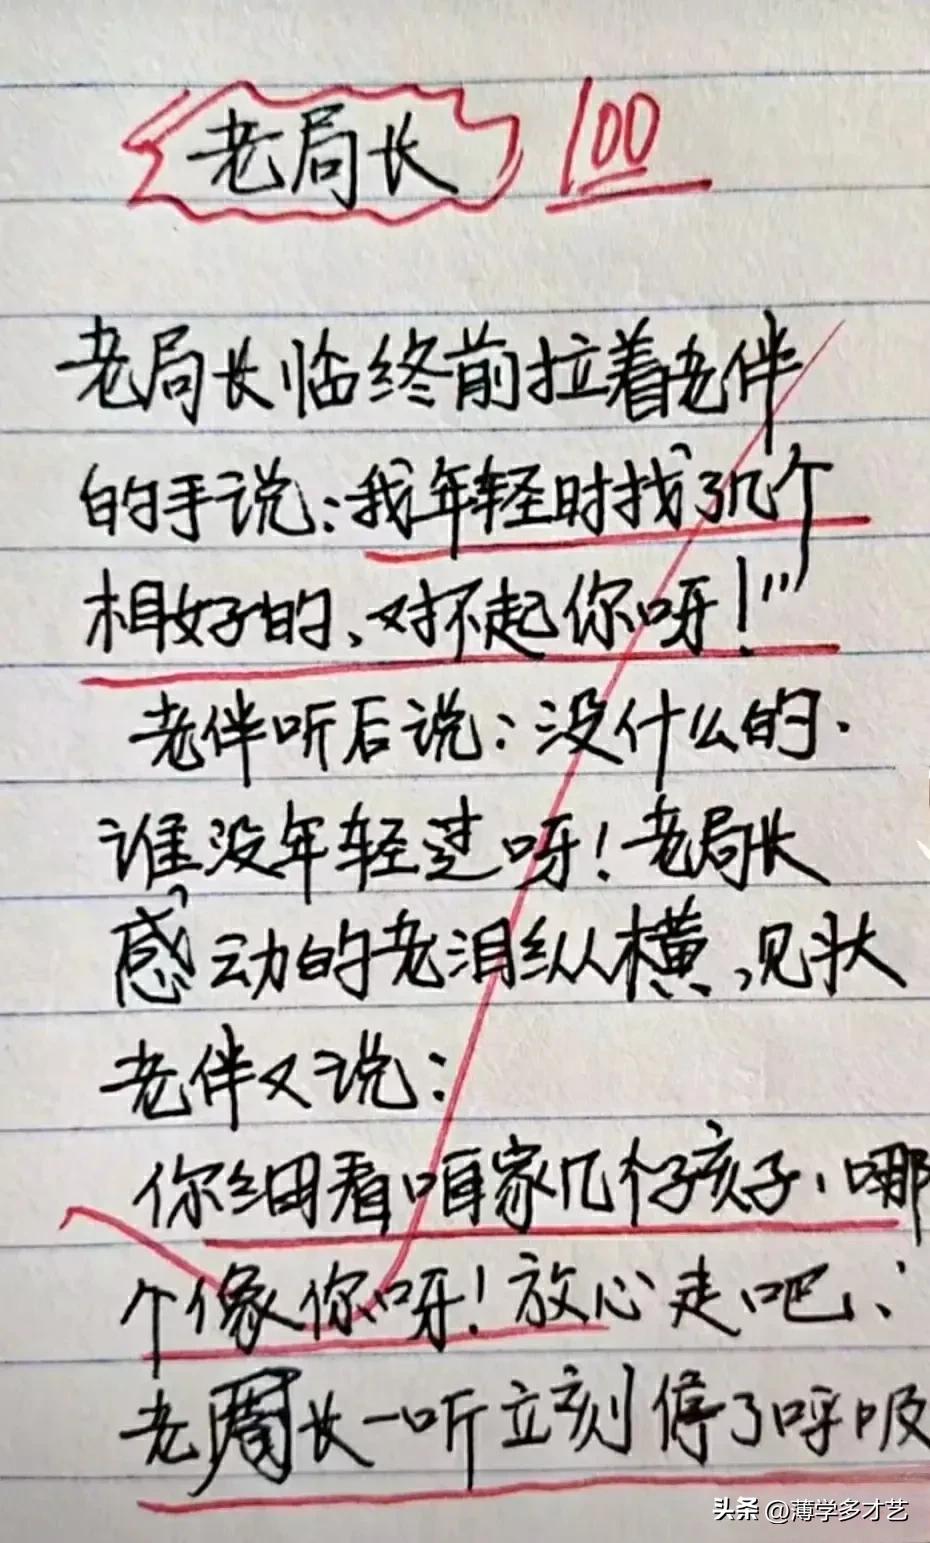 老局长 100
老局长临终前拉着老伴
的手说:我年轻时找了几个
相好的、对不起你呀!"
老伴听后说:没什么的.
谁没年轻过呀!老局长
感动的老泪纵横,见状
老伴又说:
你细看咱家几个孩子、哪
个像你呀!放心走吧、
老局长一听立刻停了呼吸
头条 @薄学多才艺